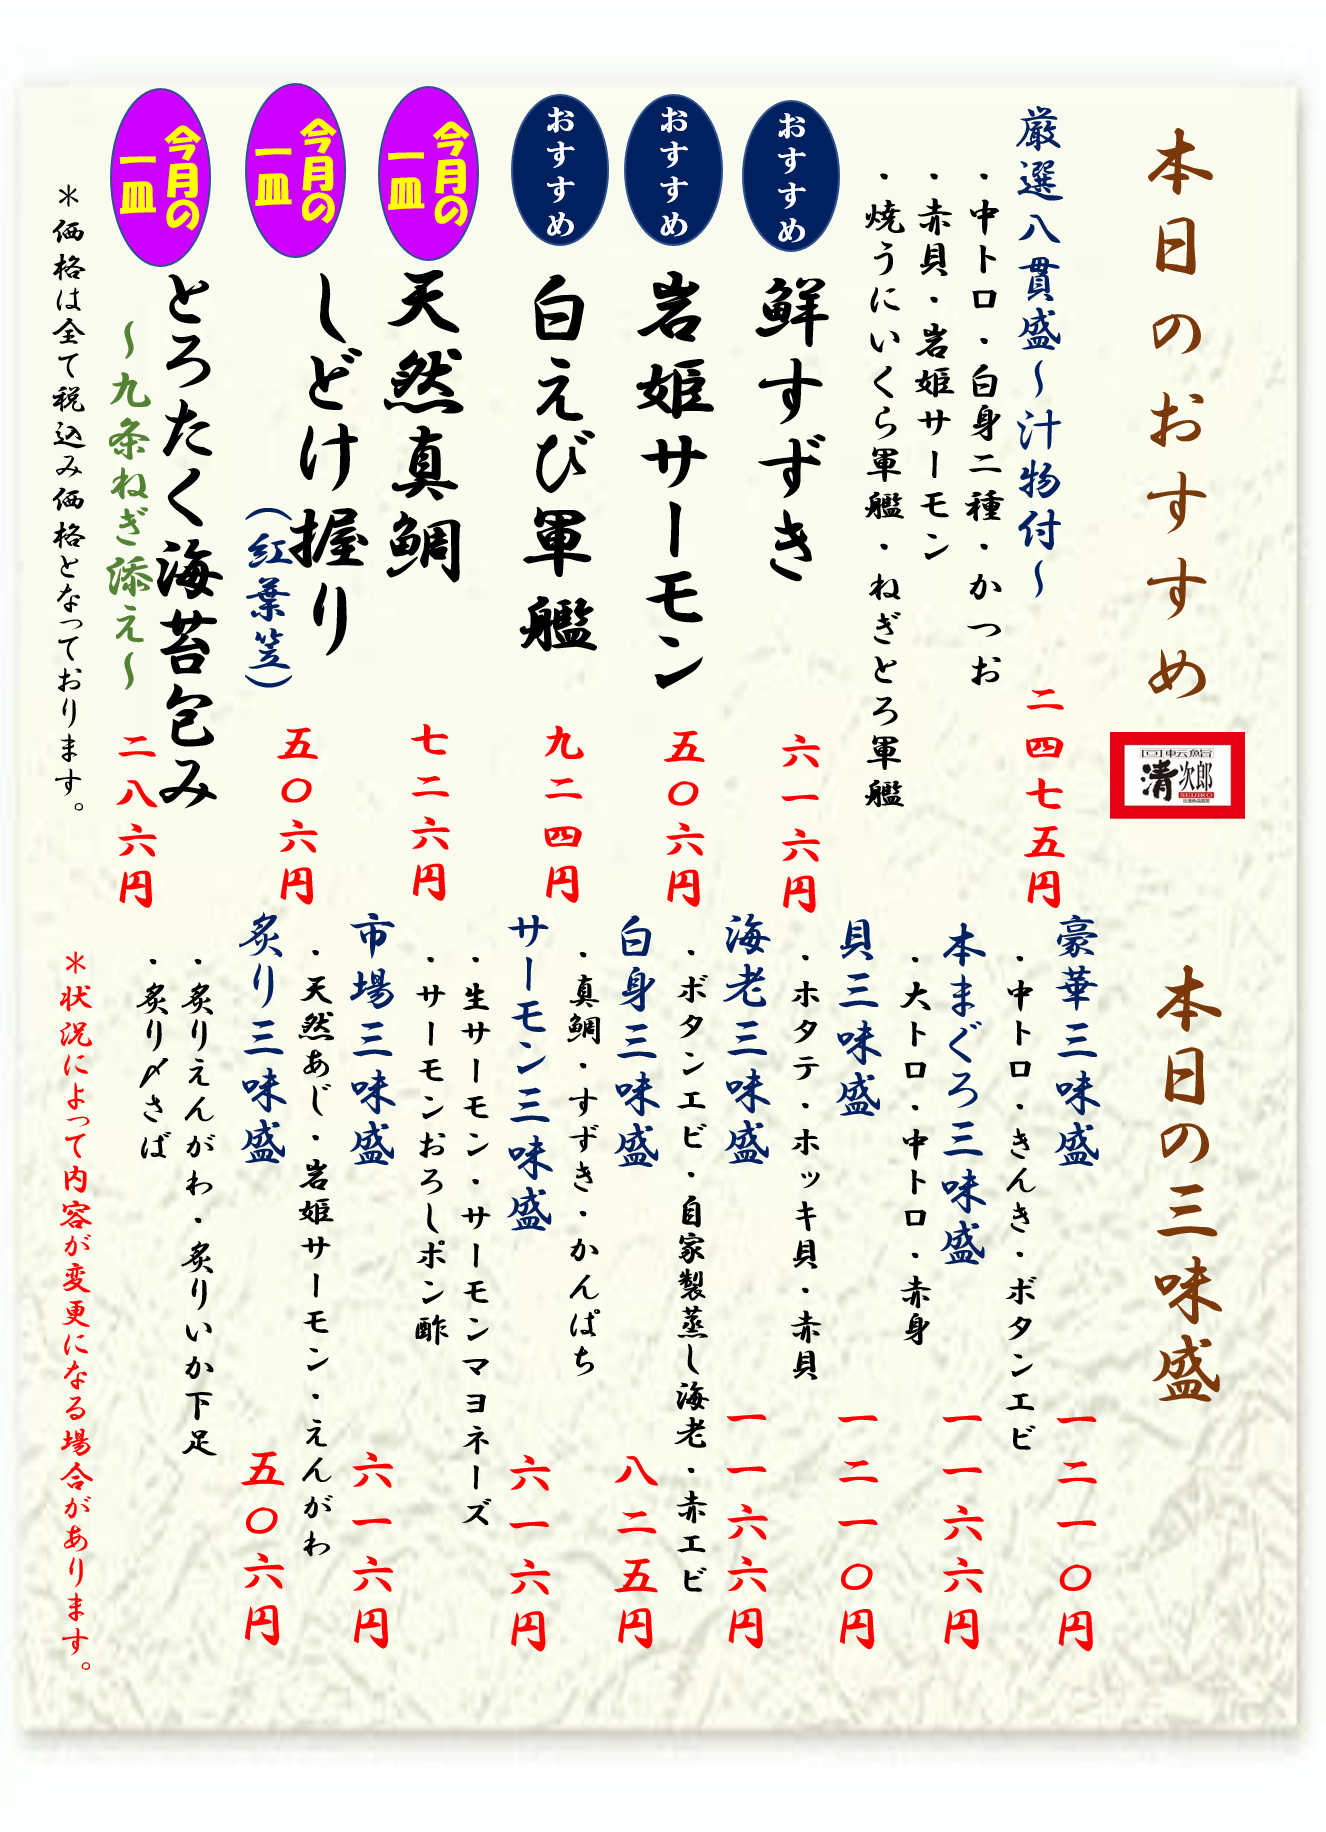 本日のおすすめ
回転鮨
清次郎
SEIJIRO
厳選八貫盛～汁物付～
二四七五円
・中トロ・白身二種・かつお
・赤貝・岩姫サーモン
・焼うにいくら軍艦・ねぎとろ軍艦
おすすめ
鮮すずき
六一六円
おすすめ
岩姫サーモン
五〇六円
おすすめ
白えび軍艦
九二四円
今月の
一皿
天然真鯛
七二六円
今月の
一皿
しどけ握り
(紅葉笠)
五〇六円
今月の
一皿
とろたく海苔包み
～九条ねぎ添え～
二八六円
＊価格は全て税込み価格となっております。
本日の三味盛
豪華三味盛
一二一〇円
・中トロ・きんき・ボタンエビ
本まぐろ三味盛
一一六六円
・大トロ・中トロ・赤身
貝三味盛
一二一〇円
・ホタテ・ホッキ貝・赤貝
海老三味盛
一一六六円
・ボタンエビ・自家製蒸し海老・赤エビ
白身三味盛
八二五円
・真鯛・すずき・かんぱち
サーモン三味盛
六一六円
・生サーモン・サーモンマヨネーズ
・サーモンおろしポン酢
市場三味盛
六一六円
・天然あじ・岩姫サーモン・えんがわ
炙り三味盛
五〇六円
・炙りえんがわ・炙りいか下足
・炙り〆さば
＊状況によって内容が変更になる場合があります。